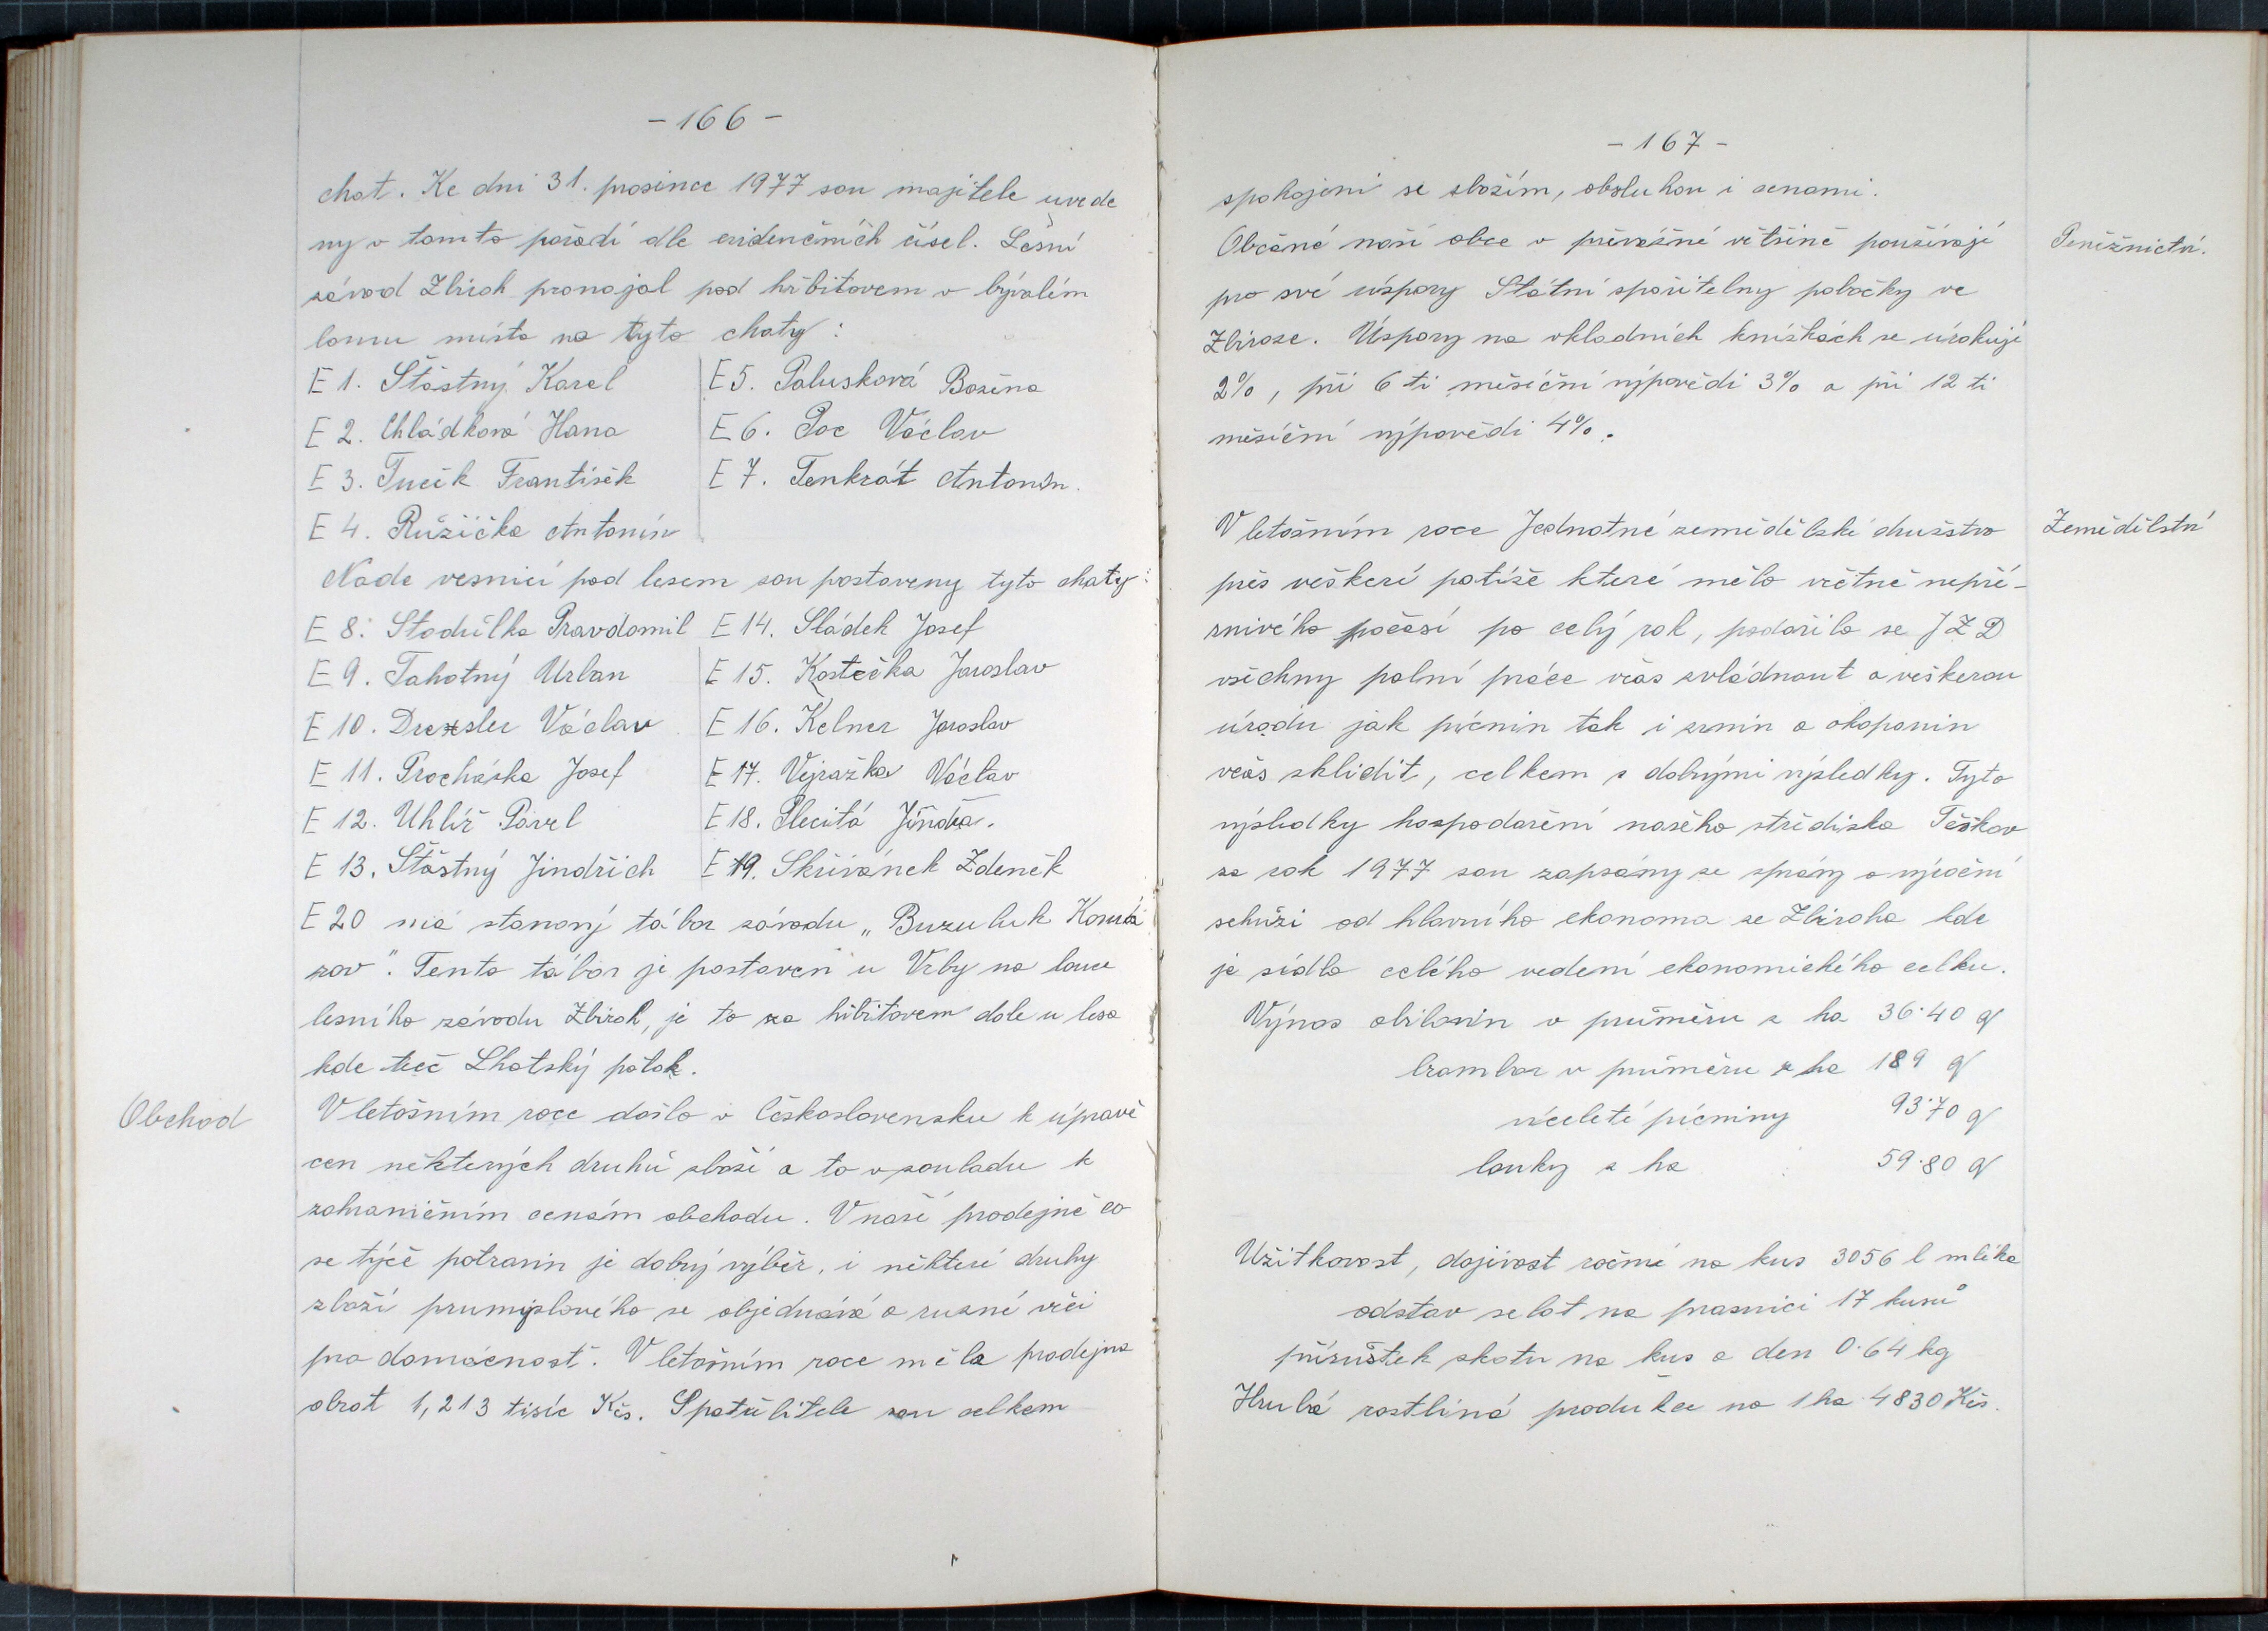 - 166 -
chat. Ke dni 31. prosince 1977 sou majitele uvede
ny v tomto pořadí dle evidenčních čísel. Lesní
závod Zbiroh pronajal pod hřbitovem v bývalém
lomu místa na tyto chaty:
E 1. Šťastný Karel
E 2. Chládková Hana
E 3. Tuček František
E 4. Růžička Antonín
E 5. Palusková Božena
E 6. Poc Václav
E 7. Tenkrát Antonín.
Nade vesnicí pod lesem sou postaveny tyto chaty:
E 8. Stodůlka Pravdomil
E 9. Tahotný Urban
E 10. Drexsler Václav
E 11. Procházka Josef
E 12. Uhlíř Pavel
E 13. Šťastný Jindřich
E 14. Sládek Josef
E 15. Kostečka Jaroslav
E 16. Kelner Jaroslav
E 17. Vejražka Václav
E 18. Plecitá Jindra.
E 19. Skřivánek Zdeněk
E 20 má stanový tábor závodu „Buzuluk Komá
rov". Tento tábor je postaven u Vrby na louce
lesního závodu Zbiroh, je to za hřbitovem dole u lesa
kde teče Lhotský potok.
Obchod
V letošním roce došlo v Československu k úpravě
cen některých druhů zboží a to v souladu k
zahraničním cenám obchodu. V naší prodejně co
se týče potravin je dobrý výběr, i některé druhy
zboží prumyslového se objednává a ruzné věci
pro domácnost. V letošním roce měla prodejna
obrat 1,213 tisíc Kčs. Spotřebitelé sou celkem
- 167 -
spokojeni se zbožím, obsluhou i cenami.
Peněžnictví.
Občané naší obce v převážné většině používají
pro své úspory Státní spořitelny pobočky ve
Zbiroze. Úspory na vkladních knížkách se úrokují
2%, při 6 ti měsíční výpovědi 3% a při 12 ti
měsíční výpovědi 4%.
Zemědělství
V letošním roce Jednotné zemědělské družstvo
přes veškeré potíže které mělo včetně nepří-
znivého počasí po celý rok, podařilo se JZD
všechny polní práce včas zvládnout a veškerou
úrodu jak pícnin tak i zrnin a okopanin
včas sklidit, celkem s dobrými výsledky. Tyto
výsledky hospodaření našeho střediska Těškov
za rok 1977 sou zapsány ze zprávy o výroční
schůzi od hlavního ekonoma ze Zbiroha kde
je sídlo celého vedení ekonomického celku.
Výnos obilovin v průměru z ha 36·40 q
brambor v průměru z ha 189 q
víceleté pícniny 93·70 q
louky z ha 59·80 q
Užitkovost, dojivost roční na kus 3056 l mléka
odstav selat na prasnici 17 kusů
přírůstek skotu na kus a den 0·64 kg
Hrubá rostliná produkce na 1 ha 4830 Kčs.